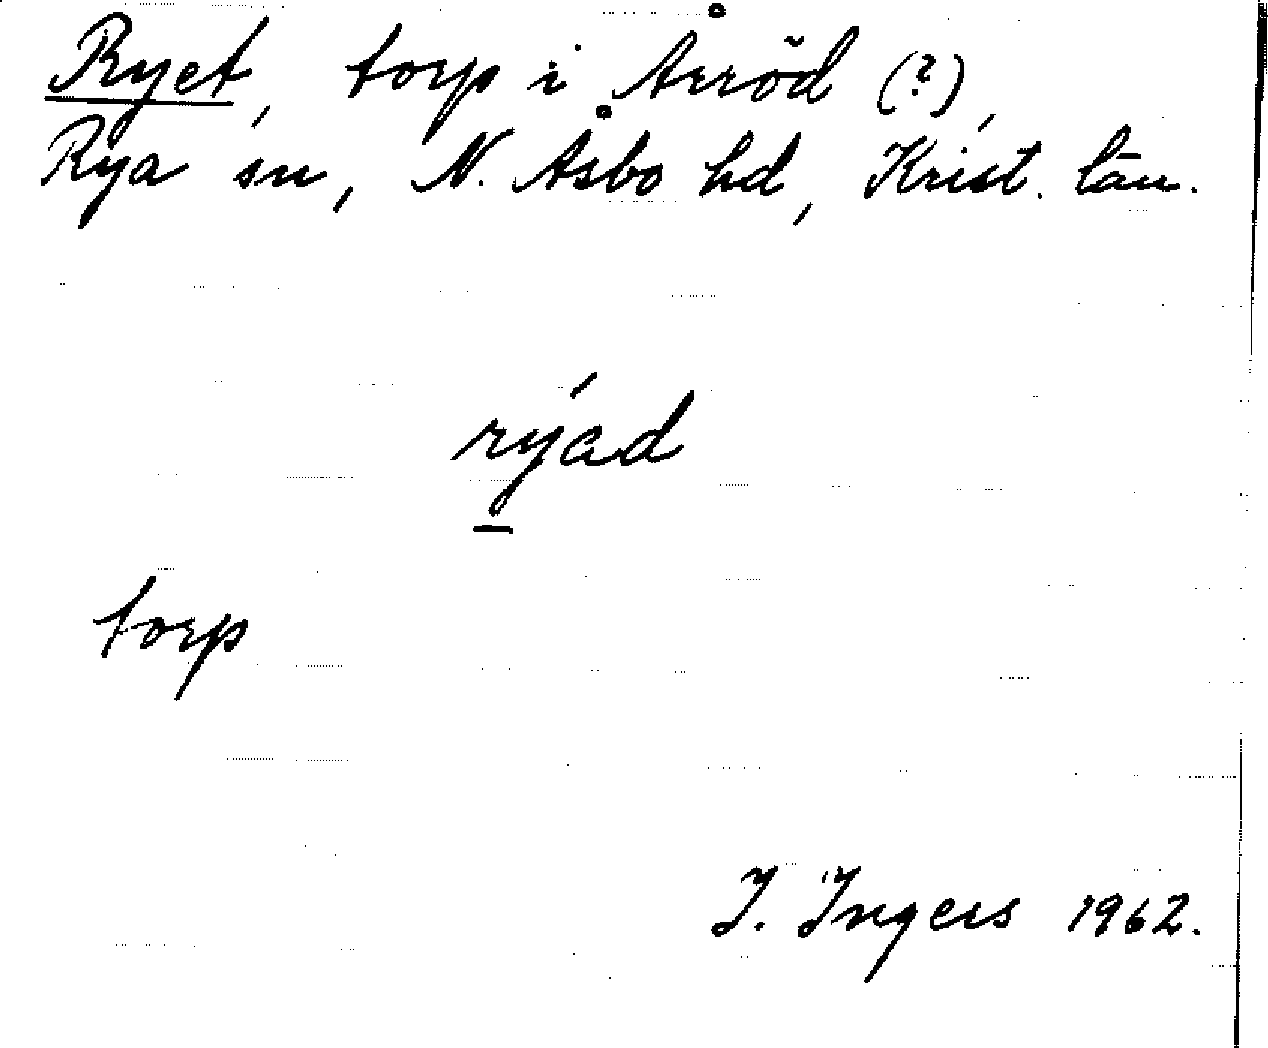 Ryet, torp i Årröd (?),
Rya sn, N. Åsbo hd, Krist. län.
rýad
torp
I. Ingers 1962.